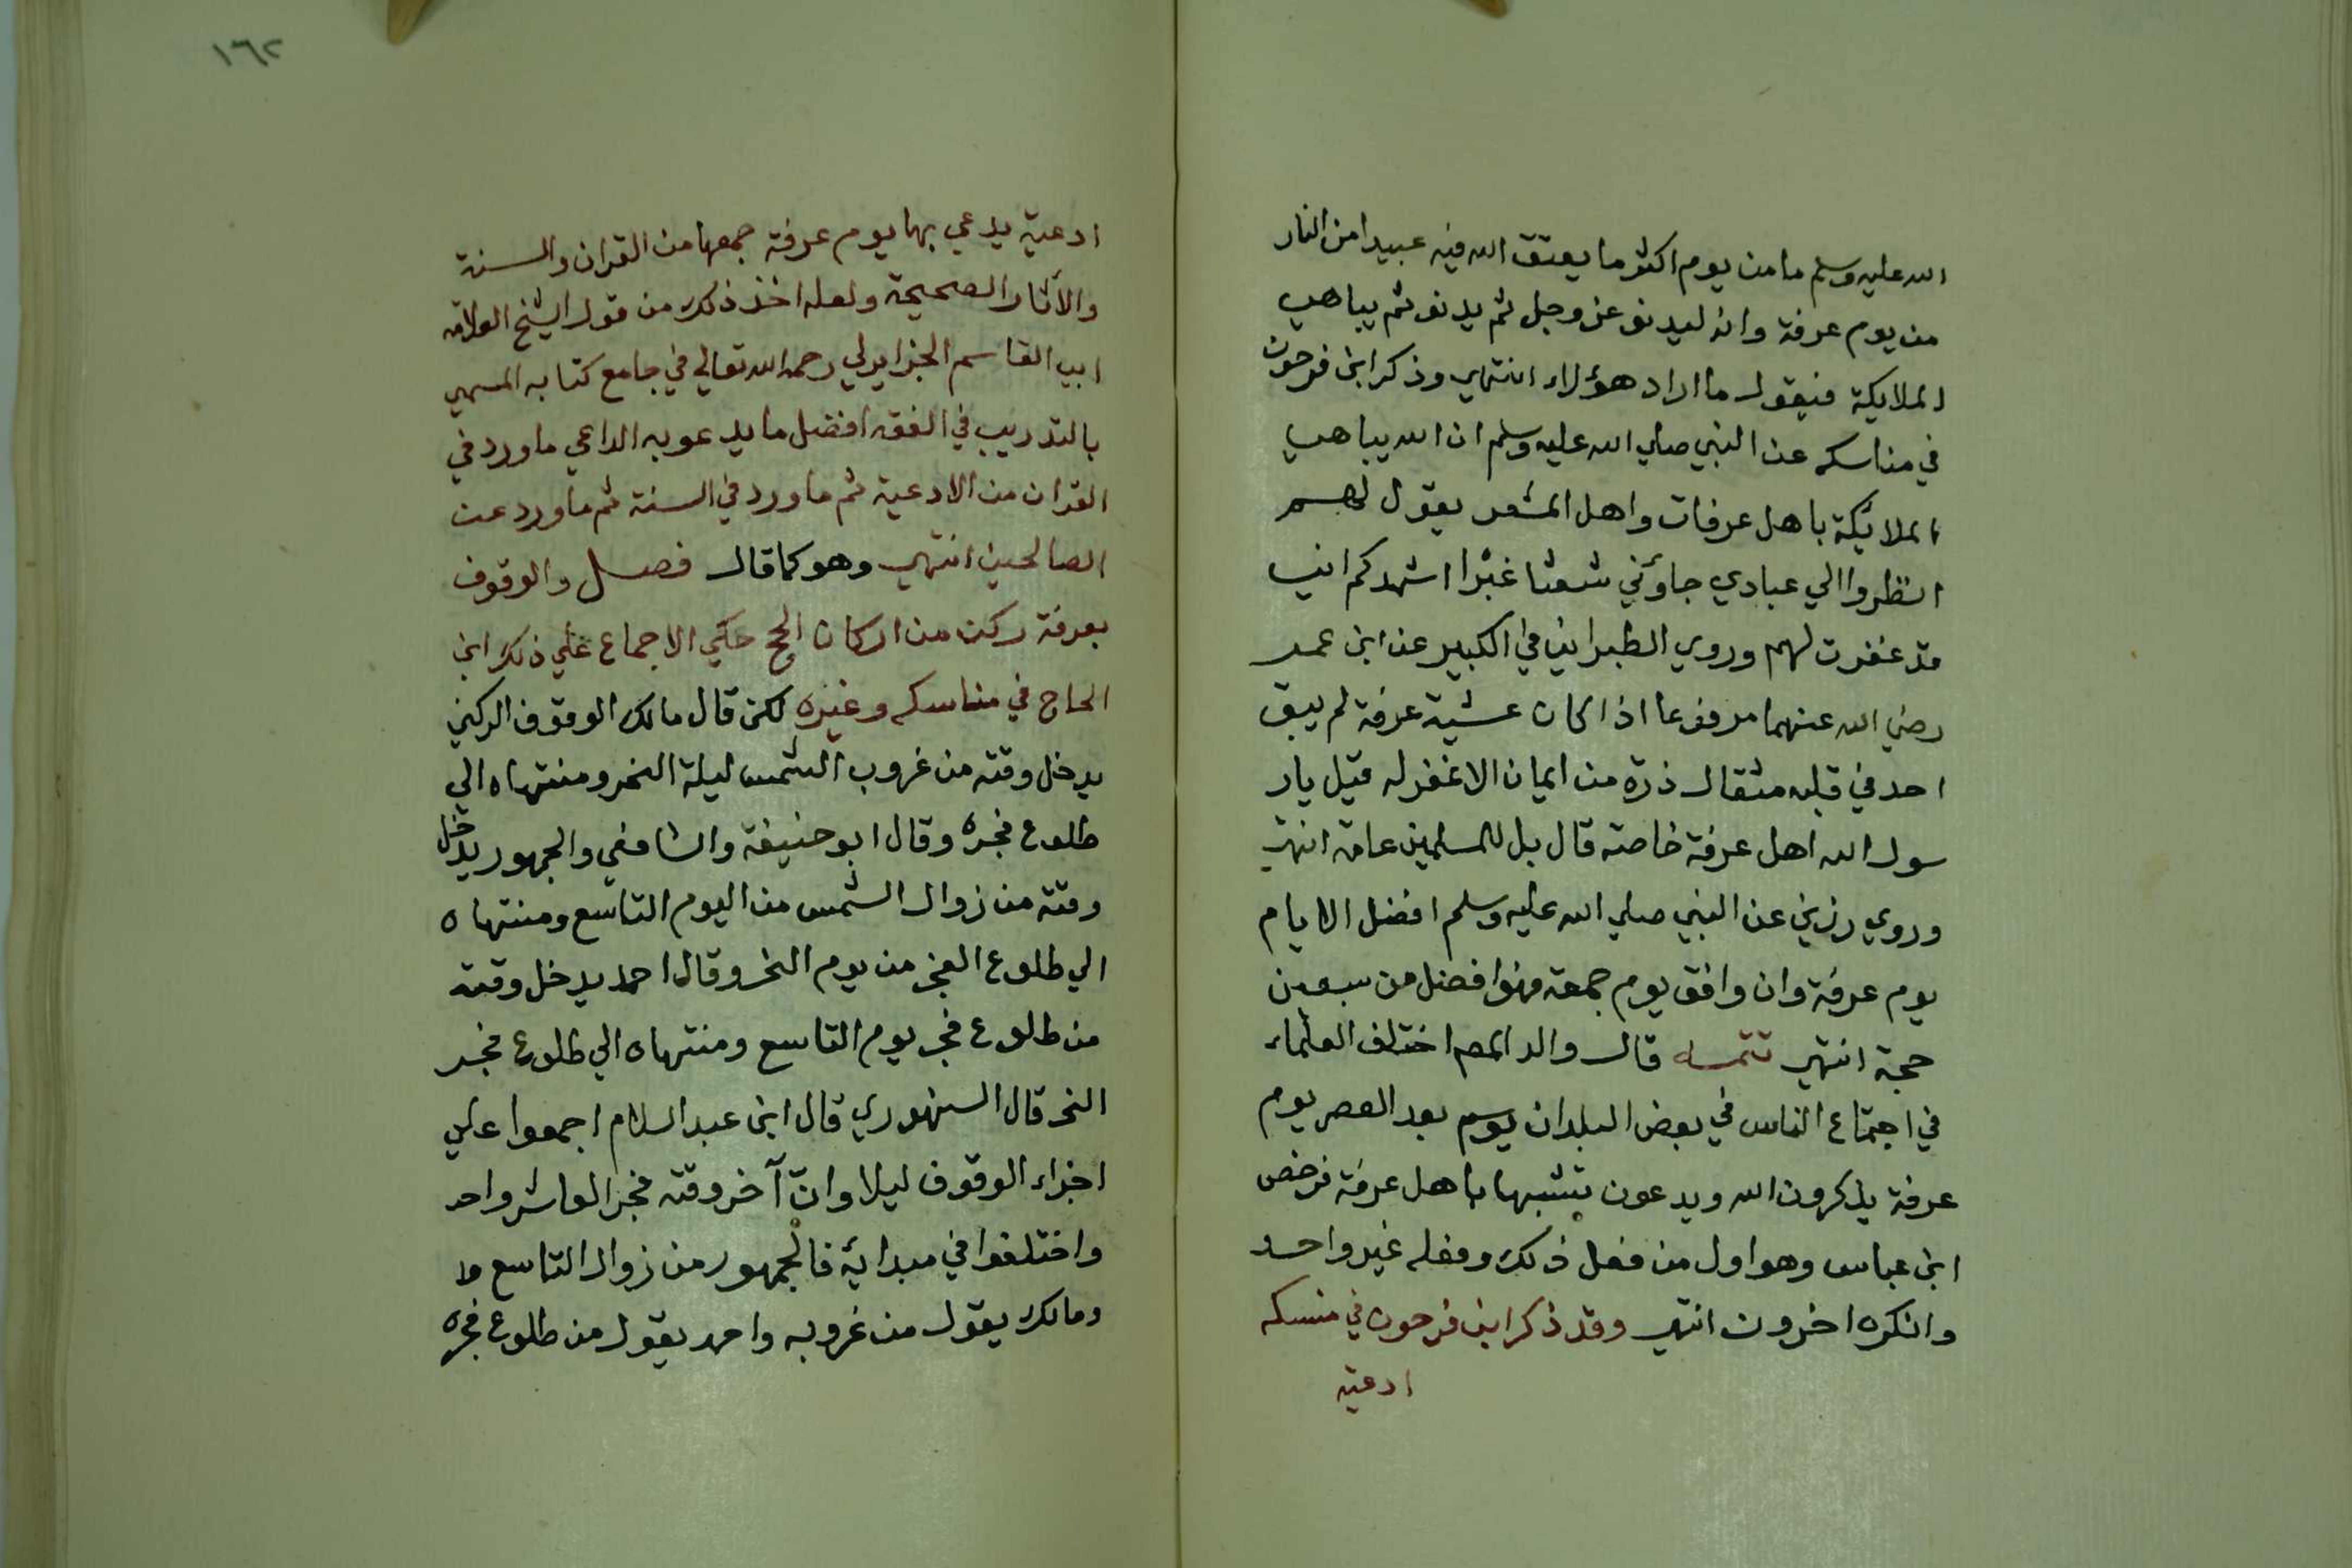 الله عليه وسلم ما من يوم اكثر ما يعتق الله فيه عبيدا من النار
من يوم عرفة وانه ليدنو عز وجل ثم يدنو ثم يباهي
لملايكة فيقول ما اراد هؤلاء انتهي وذكر ابن فرحون
في مناسكه عن النبي صلي الله عليه وسلم ان الله يباهي
الملائكة باهل عرفات واهل المشعر يقول لهم
انظروا الي عبادي جاؤني شعثا غبرا اشهدكم اني
قد غفرت لهم وروي الطبراني في الكبير عن ابن عمر
رضي الله عنهما مرفوعا اذا كان عشية عرفة لم يبق
احد في قلبه مثقال ذرة من ايمان الا غفر له قيل يار
سول الله اهل عرفة خاصة قال بل للمسلمين عامة انتهي
وروي رزين عن النبي صلي الله عليه وسلم افضل الايام
يوم عرفة وان وافق يوم جمعة فهو افضل من سبعين
حجة انتهي تتمه قال والد المص اختلف العلماء
في اجتماع الناس في بعض البلدان يوم بعد العصر يوم
عرفة يذكرون الله ويدعون تشبها باهل عرفة فرخص
ابن عباس وهو اول من فعل ذلك وفعله غير واحد
وانكره اخرون انتهي وقد ذكر ابن فرحون في منسكه
ادعية
١٦٢
ادعية يدعي بها يوم عرفة جمعها من القران والسنة
والآثار الصحيحة ولعله اخذ ذلك من قول الشيخ العلامة
ابي القاسم الجزايرلي رحمه الله تعالي في جامع كتابه المسمي
بالتدريب في الفقه افضل ما يدعو به الداعي ما ورد في
القران من الادعية ثم ما ورد في السنة ثم ما ورد عن
الصالحين انتهي وهو كما قال فصل والوقوف
بعرفة ركن من اركان الحج حكي الاجماع علي ذلك ابن
الحاج في مناسكه وغيره لكن قال مالك الوقوف الركني
يدخل وقته من غروب الشمس ليلة النحر ومنتهاه الي
طلوع فجره وقال ابو حنيفة والشافعي والجمهور يدخل
وقته من زوال الشمس من اليوم التاسع ومنتهاه
الي طلوع الفجر من يوم النحر وقال احمد يدخل وقته
من طلوع فجر يوم التاسع ومنتهاه الي طلوع فجر
النحر قال السنهوري قال ابن عبد السلام اجمعوا علي
اجزاء الوقوف ليلا وانّ آخر وقته فجر العاشر واحد
واختلفوا في مبدائه فالجمهور من زوال التاسع
ومالك يقول من غروبه واحمد يقول من طلوع فجره